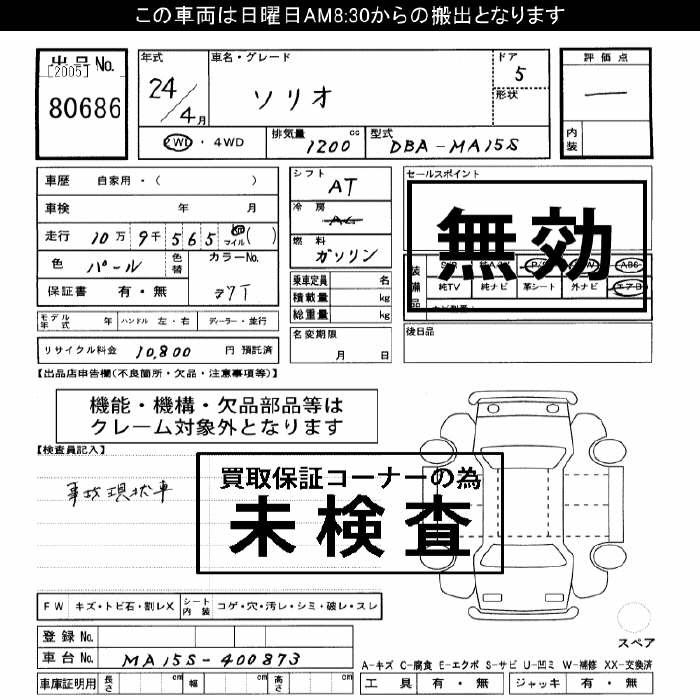 この車両は日曜日AM8:30からの搬出となります
出品No.
[2005]
80686
年式
24/4月
車名・グレード
ソリオ
ドア
5
形状
評価点
―
内装
2WD ・ 4WD
排気量 1200 cc
型式 DBA-MA15S
車歴 自家用・( )
車検 年 月
走行 10万 9千 565 マイル ( )
色 パール
色替
カラーNo.
ZVT
保証書 有・無
シフト AT
冷房 AC
燃料 ガソリン
乗車定員 名
積載量 kg
総重量 kg
セールスポイント
無効
装備品
A86
純TV 純ナビ 革シート 外ナビ エアロ
モデル年式 年 ハンドル 左・右 ディーラー・並行
リサイクル料金 10,800 円 預託済
名変期限
月 日
後日品
【出品店申告欄(不良箇所・欠品・注意事項等)】
機能・機構・欠品部品等は
クレーム対象外となります
【検査員記入】
事故現状車
買取保証コーナーの為
未検査
FW キズ・トビ石・割レX
シート内装 コゲ・穴・汚レ・シミ・破レ・スレ
スペア
登録No.
車台No. MA15S-400873
A-キズ C-腐食 E-エクボ S-サビ U-凹ミ W-補修 XX-交換済
車庫証明用 長さ cm 幅 cm 高さ cm
工具 有・無 ジャッキ 有・無